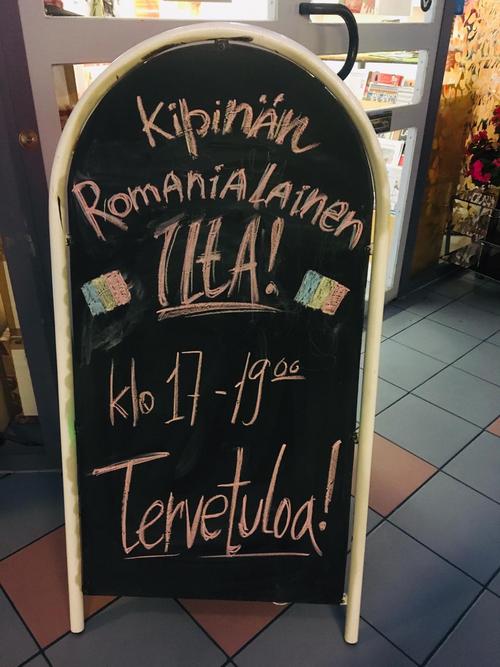 Kipinän
RomaniaLainen
ILtA!
klo 17-19⁰⁰
Tervetuloa!